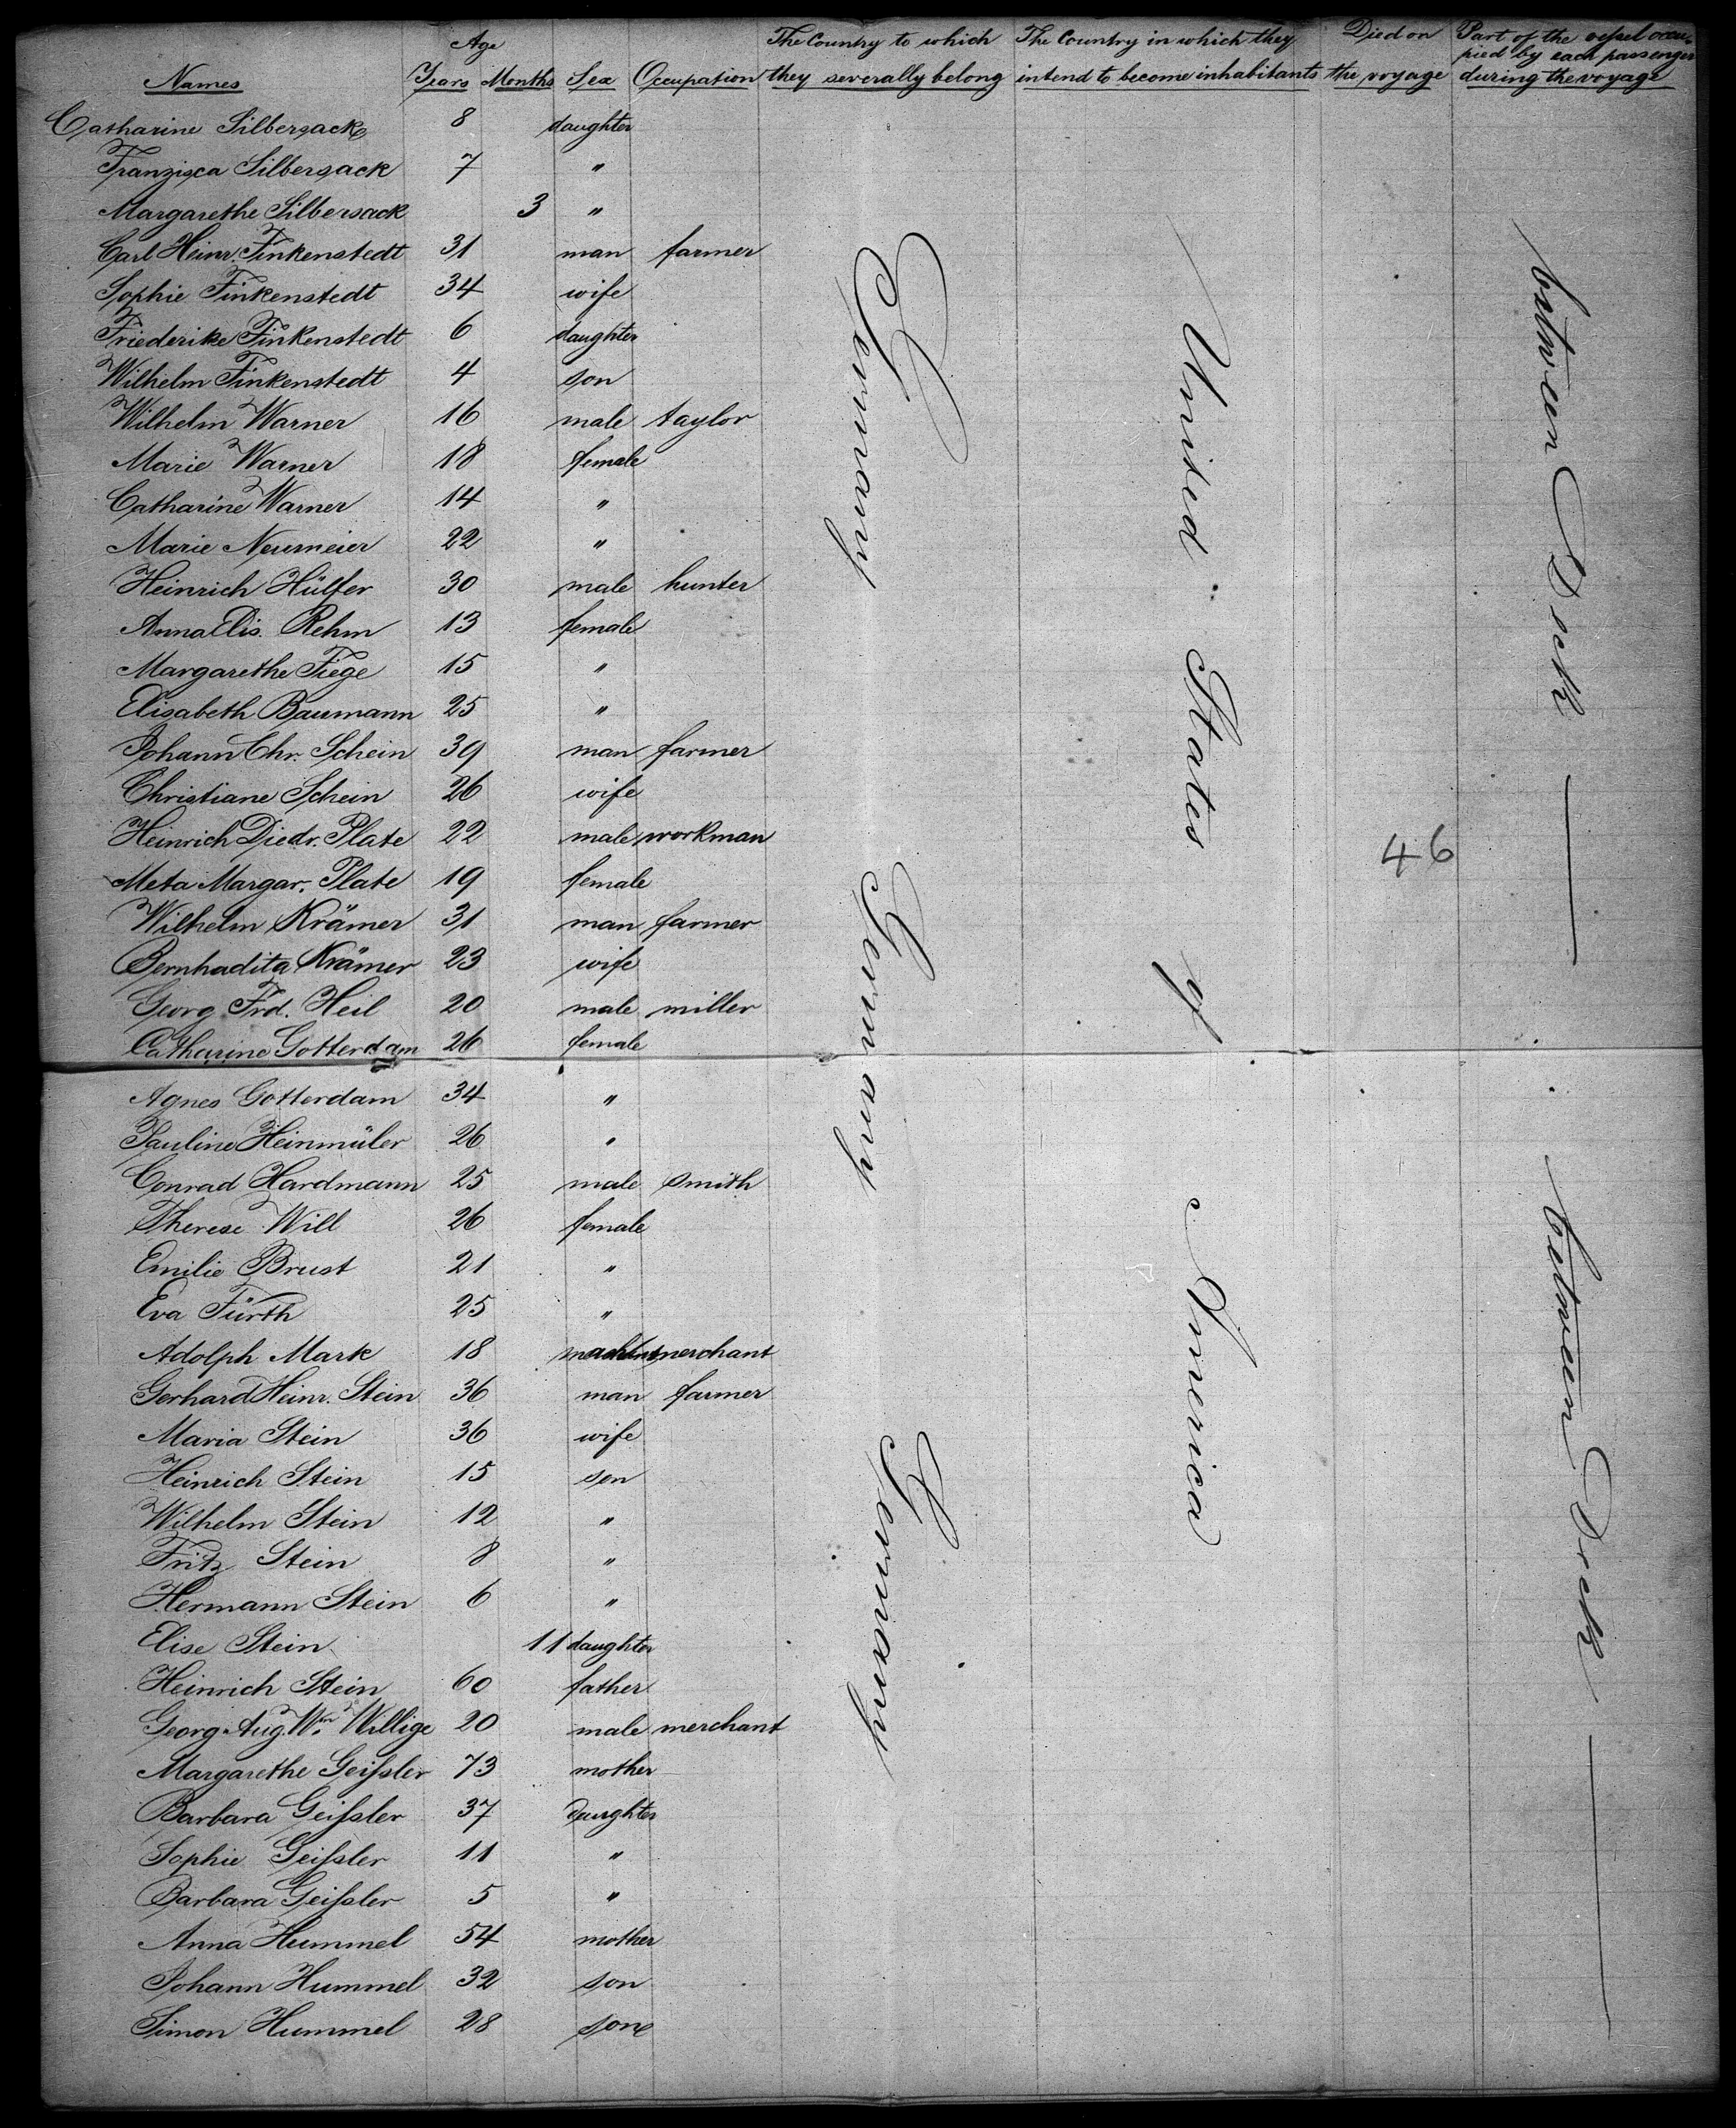 Names Age Years Months Sex Occupation The Country to which they severally belong The Country in which they intend to become inhabitants Died on the voyage Part of the vessel occupied by each passenger during the voyage
Catharine Silbersack 8 daughter
Franzisca Silbersack 7 "
Margarethe Silbersack 3 "
Carl Heinr. Finkenstedt 31 man farmer
Sophie Finkenstedt 34 wife
Friederike Finkenstedt 6 daughter
Wilhelm Finkenstedt 4 son
Wilhelm Warner 16 male taylor
Marie Warner 18 female
Catharine Warner 14 "
Marie Neumeier 22 "
Heinrich Hülfer 30 male hunter
Anna Elis. Rehm 13 female
Margarethe Fiege 15 "
Elisabeth Baumann 25 "
Johann Chr. Schein 39 man farmer
Christiane Schein 26 wife
Heinrich Diedr. Plate 22 male workman
Meta Margar. Plate 19 female
Wilhelm Krämer 31 man farmer
Bernhadita Krämer 23 wife
Georg Frd. Heil 20 male miller
Catharine Gotterdam 26 female
Agnes Gotterdam 34 "
Pauline Heinmüler 26 "
Conrad Hardmann 25 male smith
Therese Will 26 female
Emilie Brust 21 "
Eva Fürth 25 "
Adolph Mark 18 merchant
Gerhard Heinr. Stein 36 man farmer
Maria Stein 36 wife
Heinrich Stein 15 son
Wilhelm Stein 12 "
Fritz Stein 8 "
Hermann Stein 6 "
Elise Stein 11 daughter
Heinrich Stein 60 father
Georg Aug. Wm. Willige 20 male merchant
Margarethe Geißler 73 mother
Barbara Geißler 37 daughter
Sophie Geißler 11 "
Barbara Geißler 5 "
Anna Hummel 54 mother
Johann Hummel 32 son
Simon Hummel 28 son
Germany
Germany
Germany
United States of America
46
between Deck
between Deck